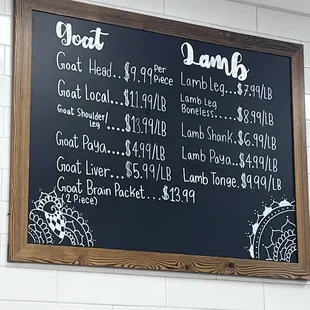 Goat
Goat Head...$9.99 Per Piece
Goat Local....$11.99/LB
Goat Shoulder/
Leg .....$13.99/LB
Goat Paya.....$4.99/LB
Goat Liver....$5.99/LB
Goat Brain Packet....$13.99
(2 Piece)
Lamb
Lamb Leg...$7.99/LB
Lamb Leg
Boneless......$8.99/LB
Lamb Shank.$6.99/LB
Lamb Paya..$4.99/LB
Lamb Tonge.$9.99/LB